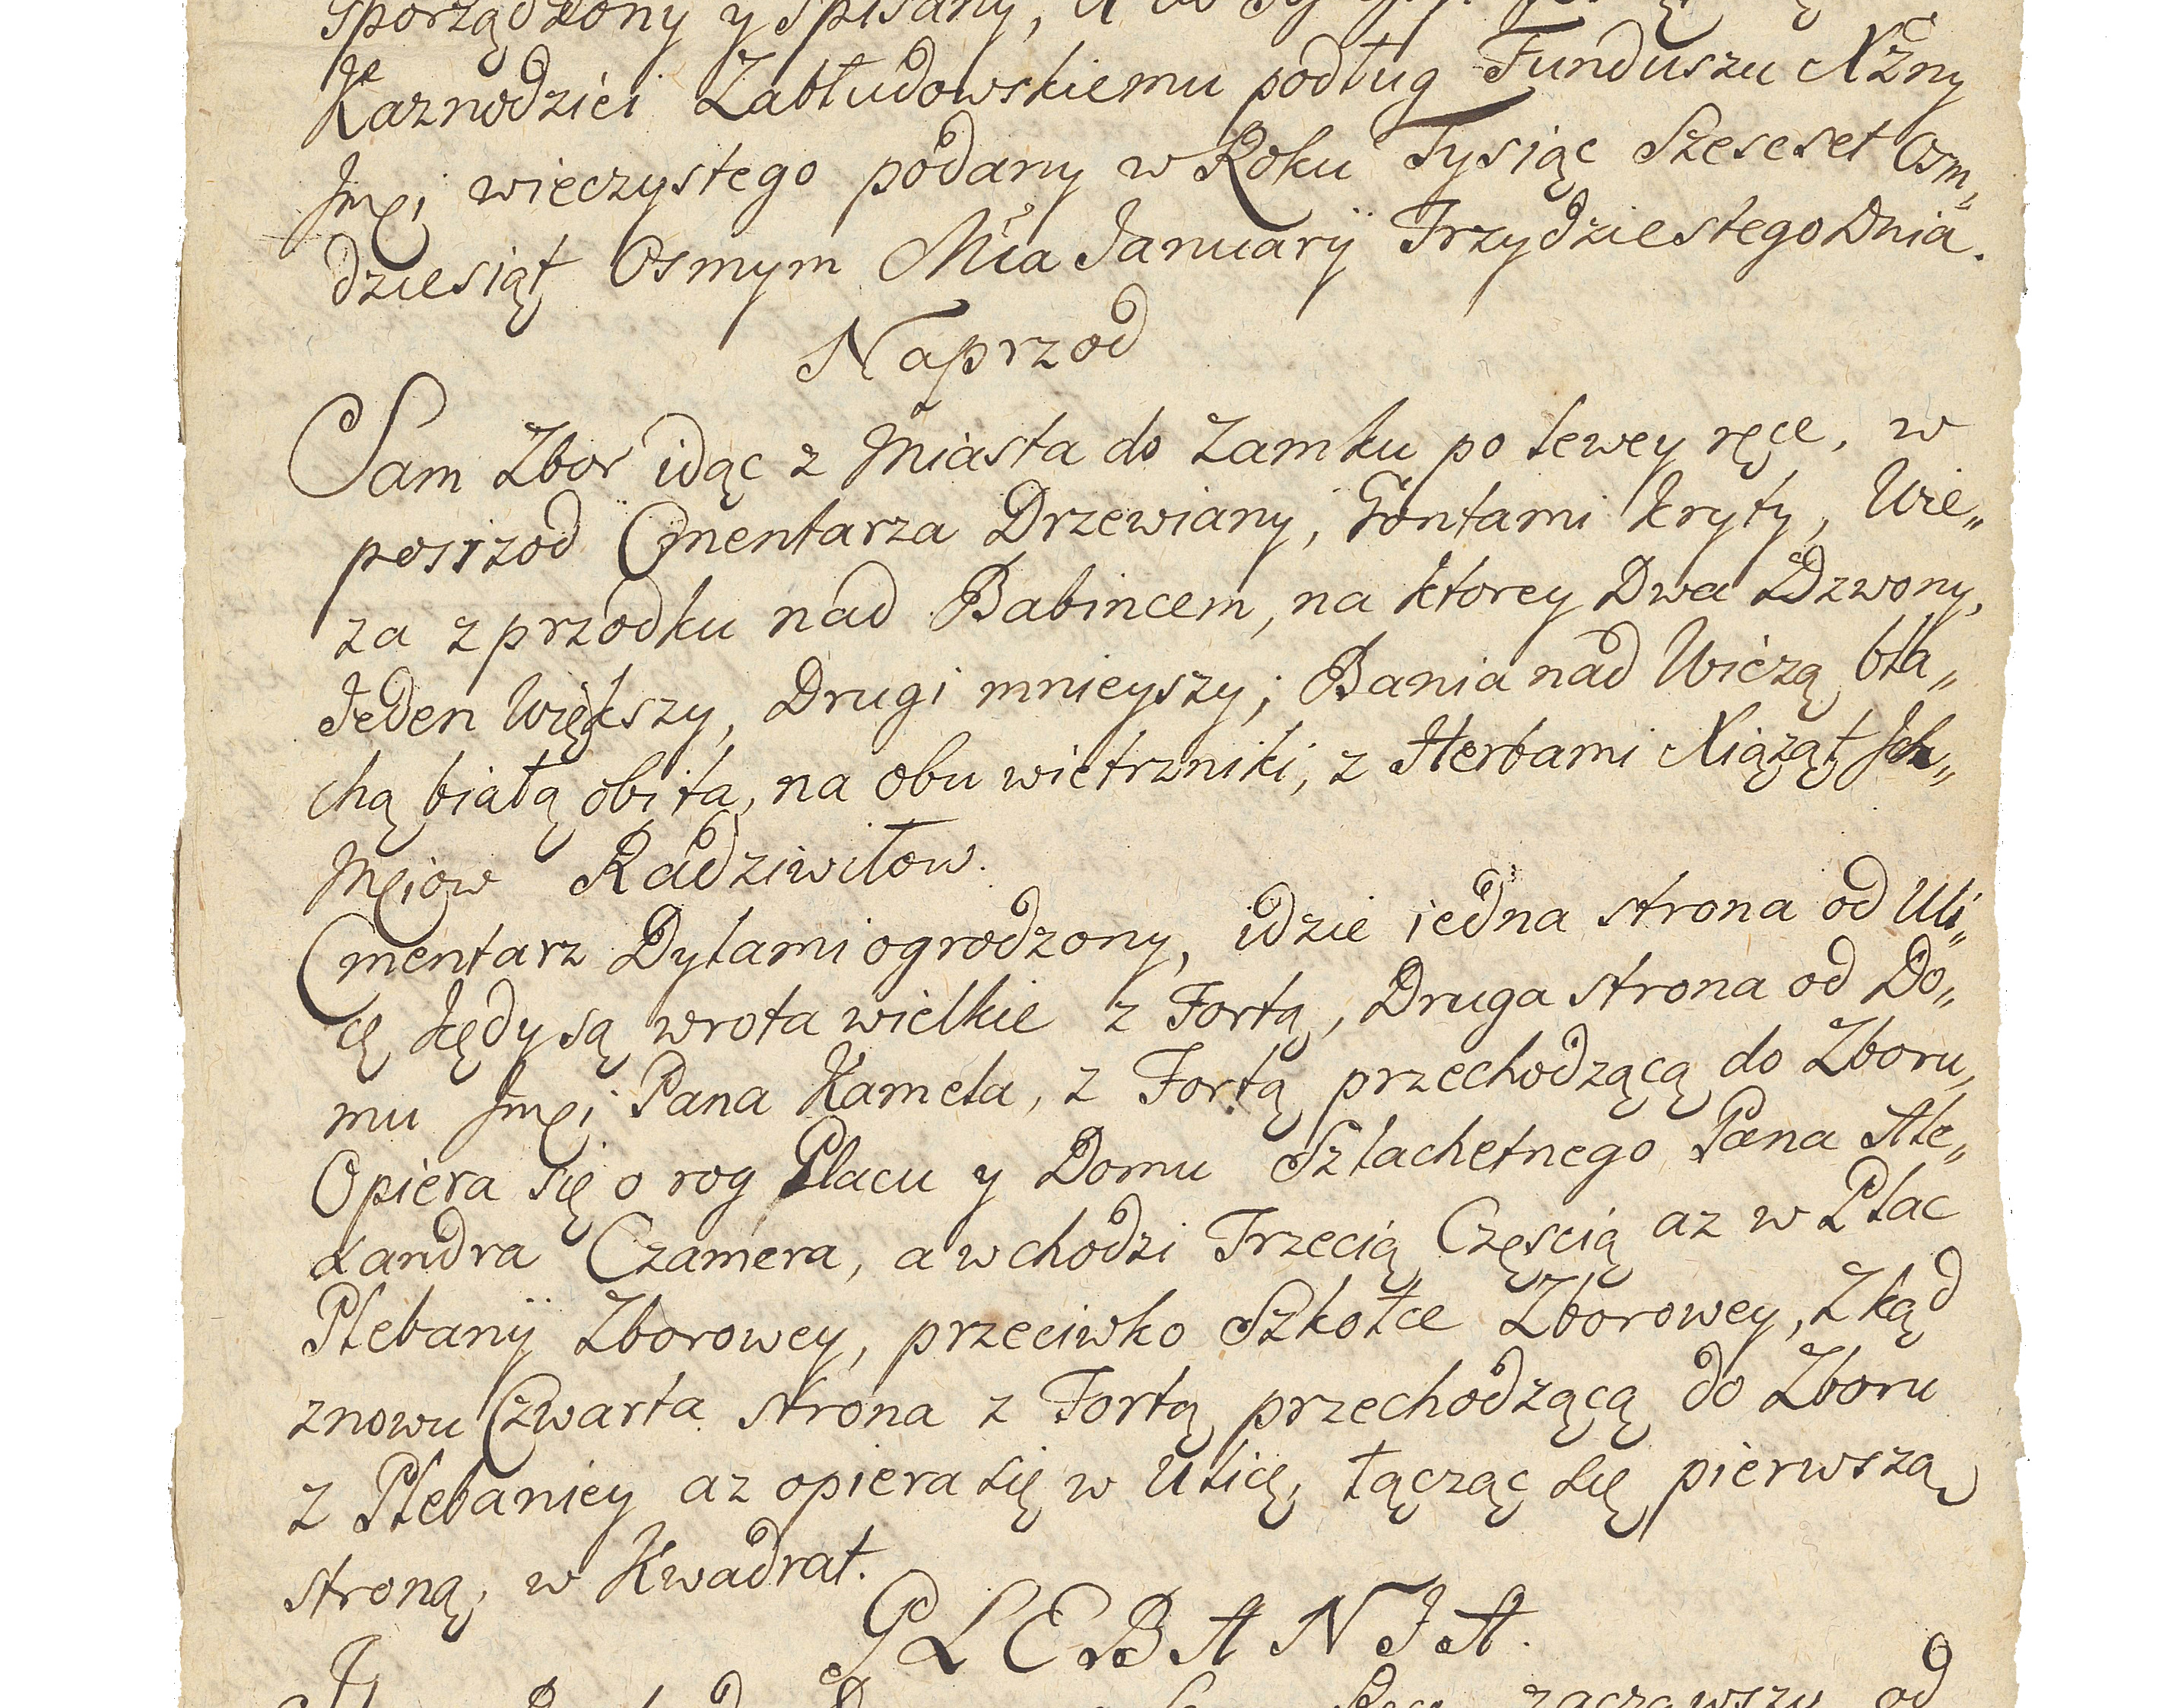 sporządzony y spisany,
Kaznodziei Zabłudowskiemu podług Funduszu Xżny
Jmći wieczystego podany w Roku Tysiąc Szescset Osm,,
dziesiąt Osmym Mća Januarÿ Trzydziestego Dnia.
Naprzod
Sam Zbor idąc z Miasta do Zamku po lewey ręce, w
posrzod Cmentarza Drzewiany, Gontami kryty, Wie,,
za z przodku nad Babincem, na ktorey Dwa Dzwony,
Jeden Większy, Drugi mnieyszy; Bania nad Wieżą bla,,
chą białą obita, na obu wietrzniki, z Herbami Xiążąt Jch,,
Mćiow Radziwiłow.
Cmentarz Dylami ogrodzony, idzie iedna strona od Uli,,
cę kędy są wrota wielkie z Fortą, Druga strona od Do,,
mu Jmći Pana Kamela, z Fortą przechodzącą do Zboru,
Opiera się o rog Placu y Domu Szlachetnego Pana Ale,,
xandra Czamera, a wchodzi Trzecią Częscią az w Plac
Plebanÿ Zborowey, przeciwko Szkołce Zborowey, Zkąd
znowu Czwarta strona z Fortą przechodzącą do Zboru
z Plebaniey az opiera się w Ulicę, łącząc się pierwszą
stroną, w Kwadrat.
PLEBANIA.
zacząwszy od